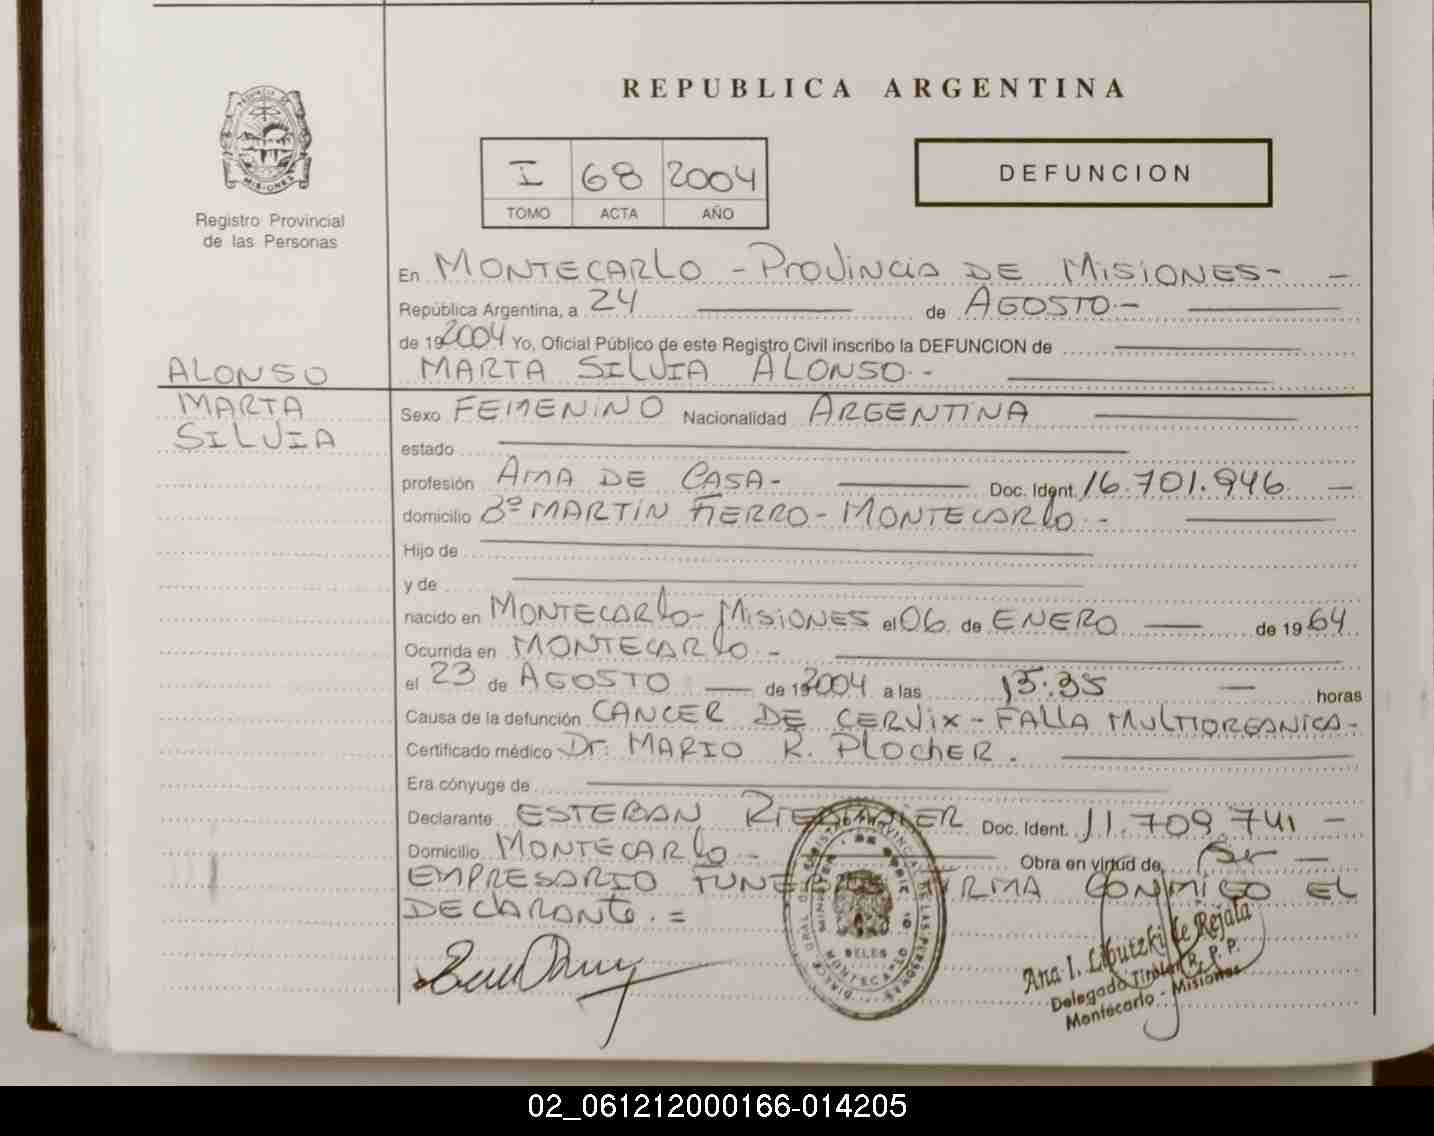 REPUBLICA ARGENTINA
PROVINCIA DE
MISIONES
Registro Provincial
de las Personas
I 68 2004
TOMO ACTA AÑO
DEFUNCION
En MONTECARLO - PROVINCIA DE MISIONES- -
República Argentina, a 24 de AGOSTO -
de 19 2004 Yo, Oficial Público de este Registro Civil inscribo la DEFUNCION de
MARTA SILVIA ALONSO.-
ALONSO
MARTA
SILVIA
Sexo FEMENINO Nacionalidad ARGENTINA
estado
profesión AMA DE CASA- Doc. Ident. 16.701.946 -
domicilio Bº MARTIN FIERRO - MONTECARLO -
Hijo de
y de
nacido en MONTECARLO- MISIONES el 06 de ENERO de 19 64
Ocurrida en MONTECARLO.-
el 23 de AGOSTO de 19 2004 a las 15:35 - horas
Causa de la defunción CANCER DE CERVIX - FALLA MULTIORGANICA-
Certificado médico Dr. MARIO R. PLOCHER.
Era cónyuge de
Declarante ESTEBAN Doc. Ident. 11.709.741 -
Domicilio MONTECARLO - Obra en virtud de Ser -
EMPRESARIO FIRMA CONMIGO EL
DECLARANTE. =
Ana I. Libutzki de Rejala
Delegada Titular R. P. P.
Montecarlo - Misiones
02_061212000166-014205